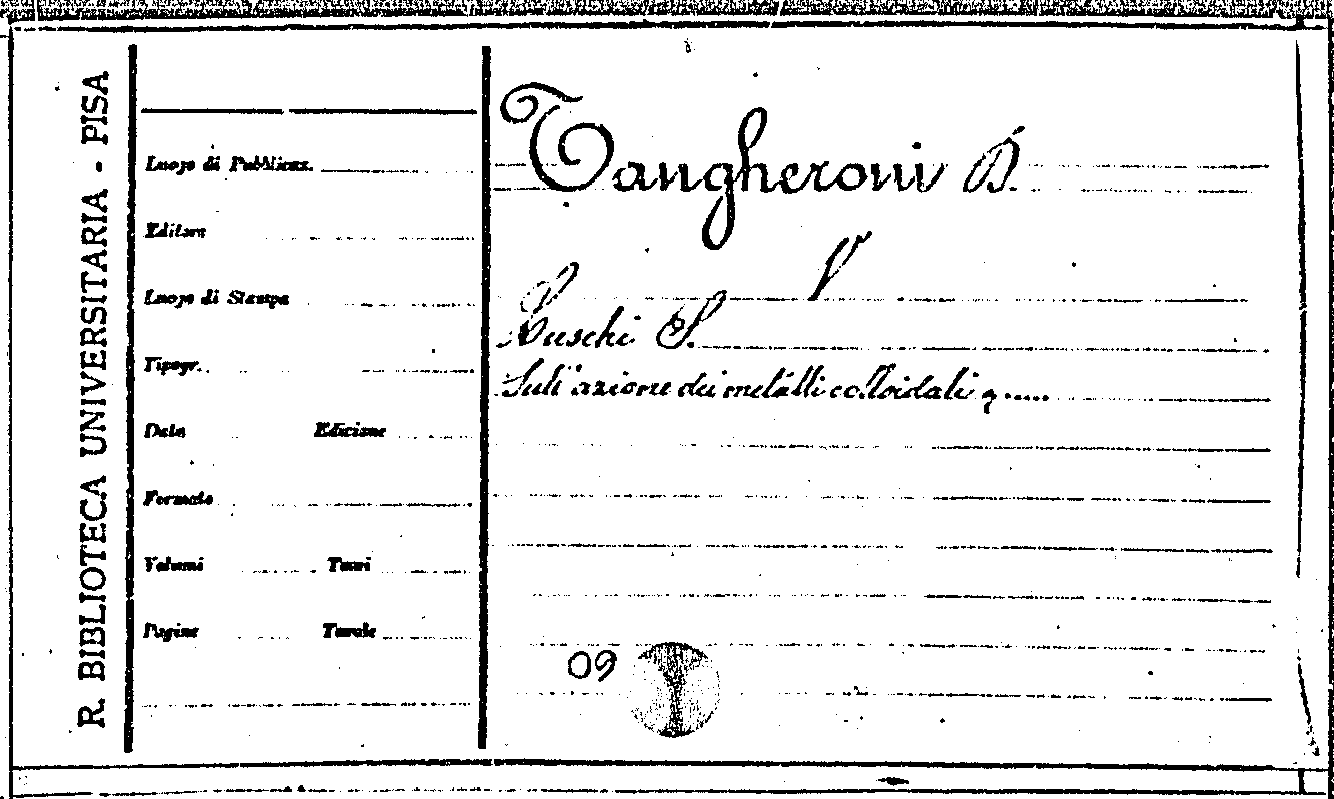 R. BIBLIOTECA UNIVERSITARIA - PISA
Luogo di Pubblicaz.
Editore
Luogo di Stampa
Tipogr.
Data Edizione
Formato
Volumi Tomi
Pagine Tavole
Tangheroni D.
V
Luschi S.
Sull'azione dei metalli colloidali
09